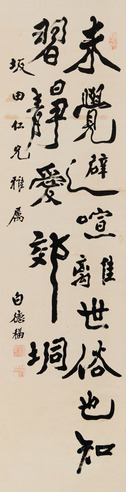 未覺避喧離世俗也知
習靜愛郊坰
坂田仁兄雅屬
白德